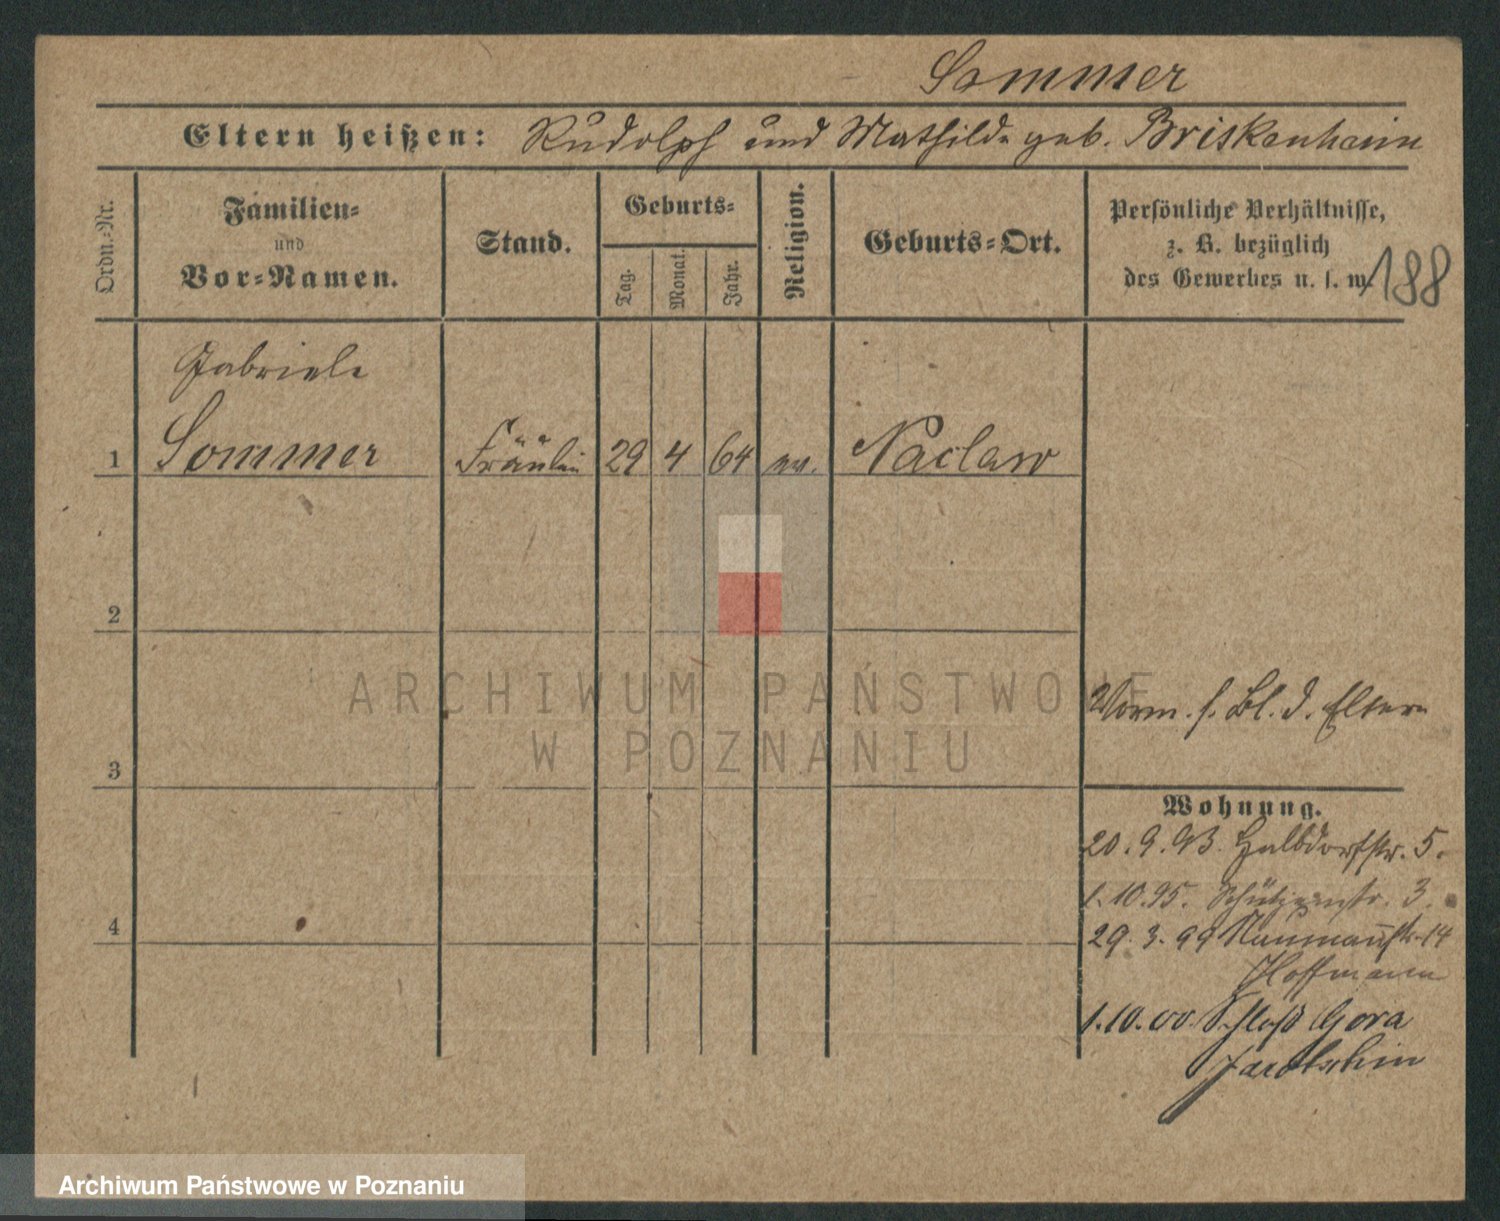 Sommer
Eltern heißen: Rudolph und Mathilde geb. Briskenhain
Ordn.-Nr.
Familien-
und
Vor-Namen.
Stand.
Geburts-
Tag. Monat. Jahr.
Religion.
Geburts-Ort.
Persönliche Verhältnisse,
z. B. bezüglich
des Gewerbes u. s. w.
188
Gabriele
1 Sommer Fräulein 29 4 64 ev. Naclaw
2
3
4
Vorm. s. Bl. d. Eltern
Wohnung.
20.9.93. Halbdorfstr. 5.
1.10.95. Schützenstr. 3.
29.3.99 Naumannstr. 14
Hoffmann
1.10.00. Schloß Gora
Jarotschin
ARCHIWUM PAŃSTWOWE
W POZNANIU
Archiwum Państwowe w Poznaniu